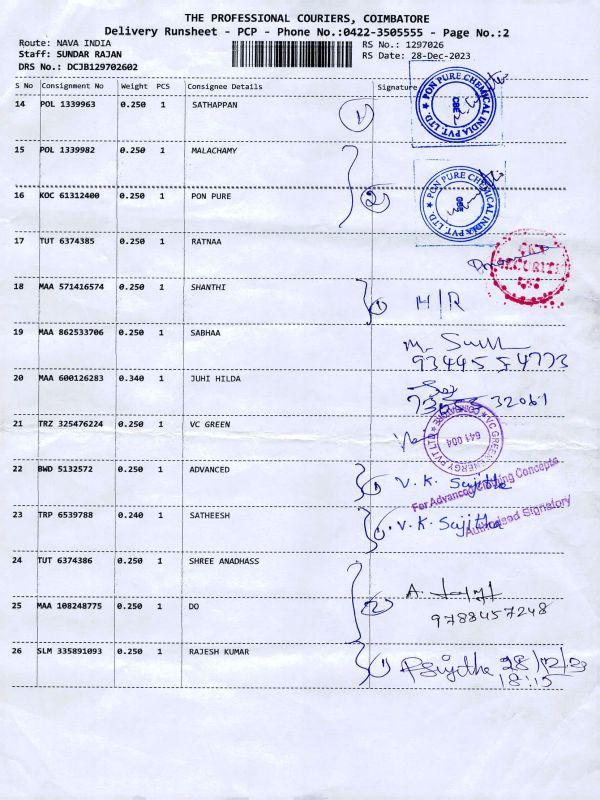 THE PROFESSIONAL COURIERS, COIMBATORE
Delivery Runsheet - PCP - Phone No.:0422-3505555 - Page No.:2
Route: NAVA INDIA
RS No.: 1297026
Staff: SUNDAR RAJAN
RS Date: 28-Dec-2023
DRS No.: DCJB129702602
S No Consignment No Weight PCS Consignee Details Signature
14 POL 1339963 0.250 1 SATHAPPAN
1
PON PURE CHEMICAL INDIA PVT. LTD. CBE
15 POL 1339982 0.250 1 MALACHAMY
2
PON PURE CHEMICAL INDIA PVT. LTD.
16 KOC 61312400 0.250 1 PON PURE
17 TUT 6374385 0.250 1 RATNAA
18 MAA 571416574 0.250 1 SHANTHI
1 H/R
19 MAA 862533706 0.250 1 SABHAA
M.
9344554773
20 MAA 600126283 0.340 1 JUHI HILDA
32061
21 TRZ 325476224 0.250 1 VC GREEN
VC GREEN ENERGY PVT LTD COIMBATORE 641 004
22 BWD 5132572 0.250 1 ADVANCED
1 V. K. Sujitha
For Advanced Concepts
23 TRP 6539788 0.240 1 SATHEESH
1 V. K. Sujitha
Authorised Signatory
24 TUT 6374386 0.250 1 SHREE ANADHASS
A.
25 MAA 108248775 0.250 1 DO
2
9788457248
26 SLM 335891093 0.250 1 RAJESH KUMAR
1 PSujitha 28/12/23
18:15